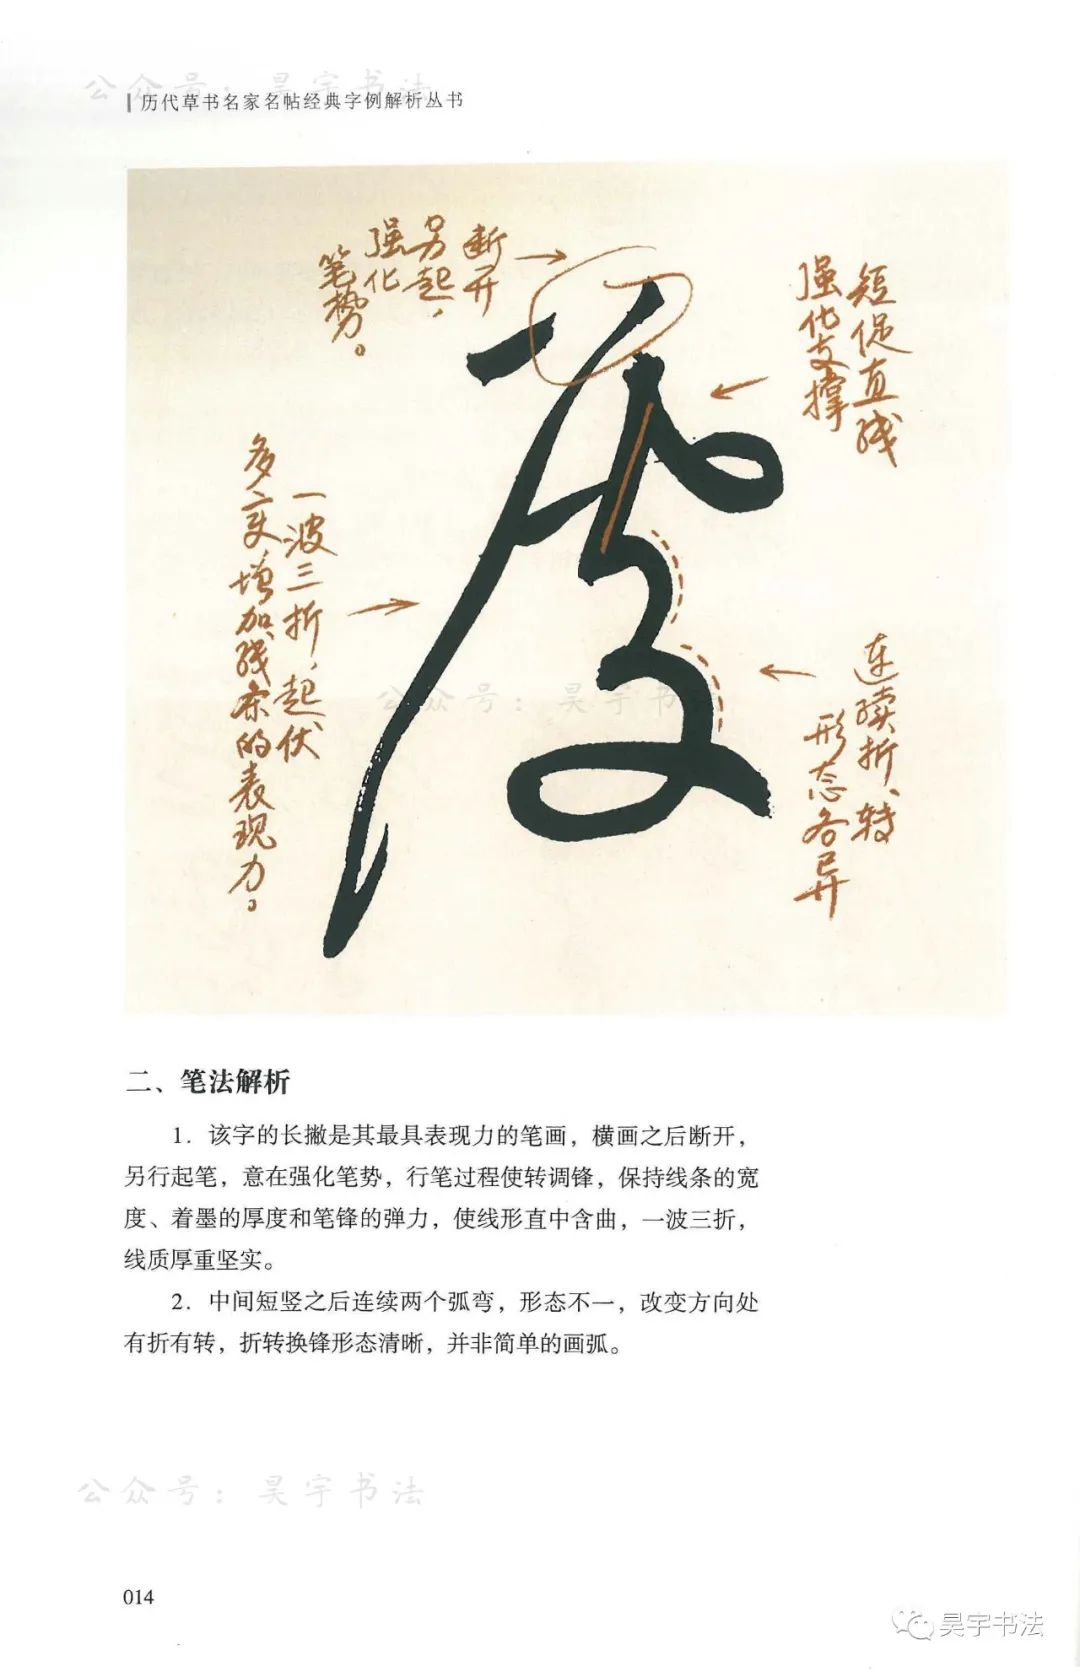 公众号：昊宇书法
历代草书名家名帖经典字例解析丛书
断开
另起，
强化
笔势。
短促直线
强化支撑
一波三折，起伏
多变增加线条的表现力。
连续折、转
形态各异
公众号：昊宇书法
二、笔法解析
1. 该字的长撇是其最具表现力的笔画，横画之后断开，
另行起笔，意在强化笔势，行笔过程使转调锋，保持线条的宽
度、着墨的厚度和笔锋的弹力，使线形直中含曲，一波三折，
线质厚重坚实。
2. 中间短竖之后连续两个弧弯，形态不一，改变方向处
有折有转，折转换锋形态清晰，并非简单的画弧。
公众号：昊宇书法
014
昊宇书法